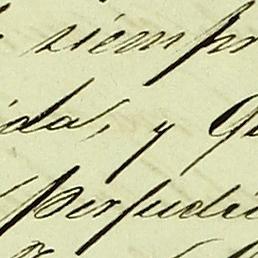 siempr
ida, y Qu
perjudic